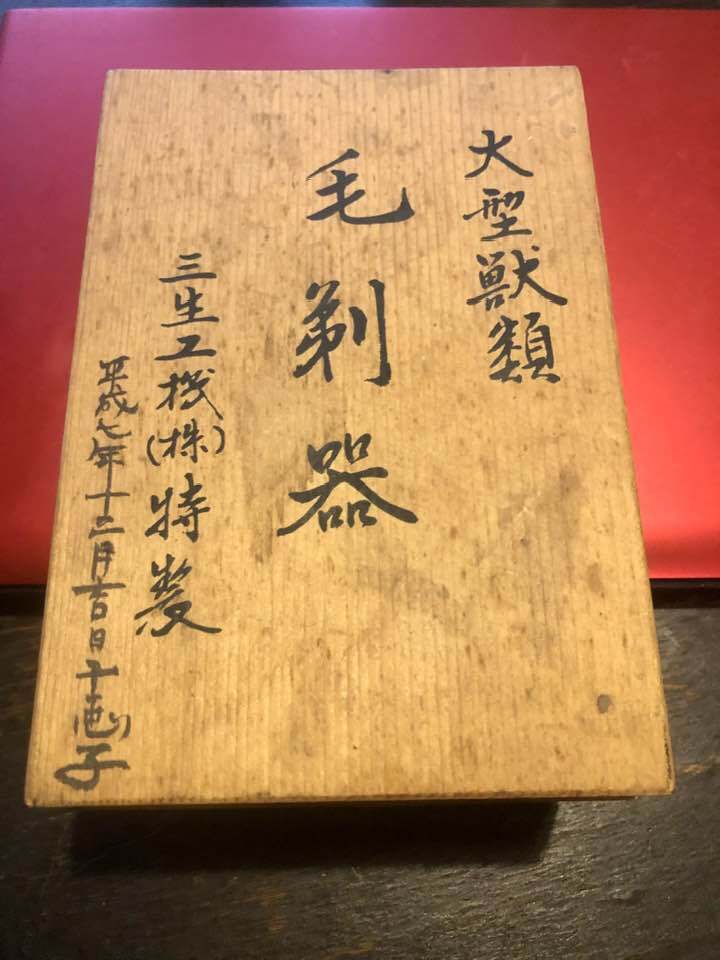 大型獣類
毛剃器
三生工機(株)特製
平成七年十二月吉日